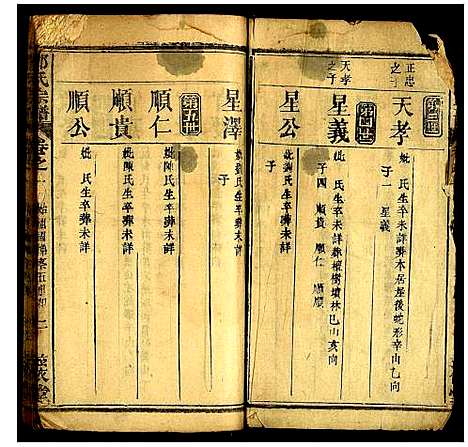 第三世
正忠之子
天孝
妣 氏生卒未詳葬本居屋後蛇形辛山乙向
子一 星義
第四世
天孝之子
星義
妣 氏生卒未詳葬檀樹墳林巳山亥向
子四 順貴 順仁 順
星公
妣 氏生卒葬未詳
子
星澤
妣 氏生卒葬未詳
子
第五世
順仁
妣陳氏生卒葬未詳
順貴
妣陳氏生卒葬未詳
順公
妣 氏生卒葬未詳
氏宗譜
卷之一
堂